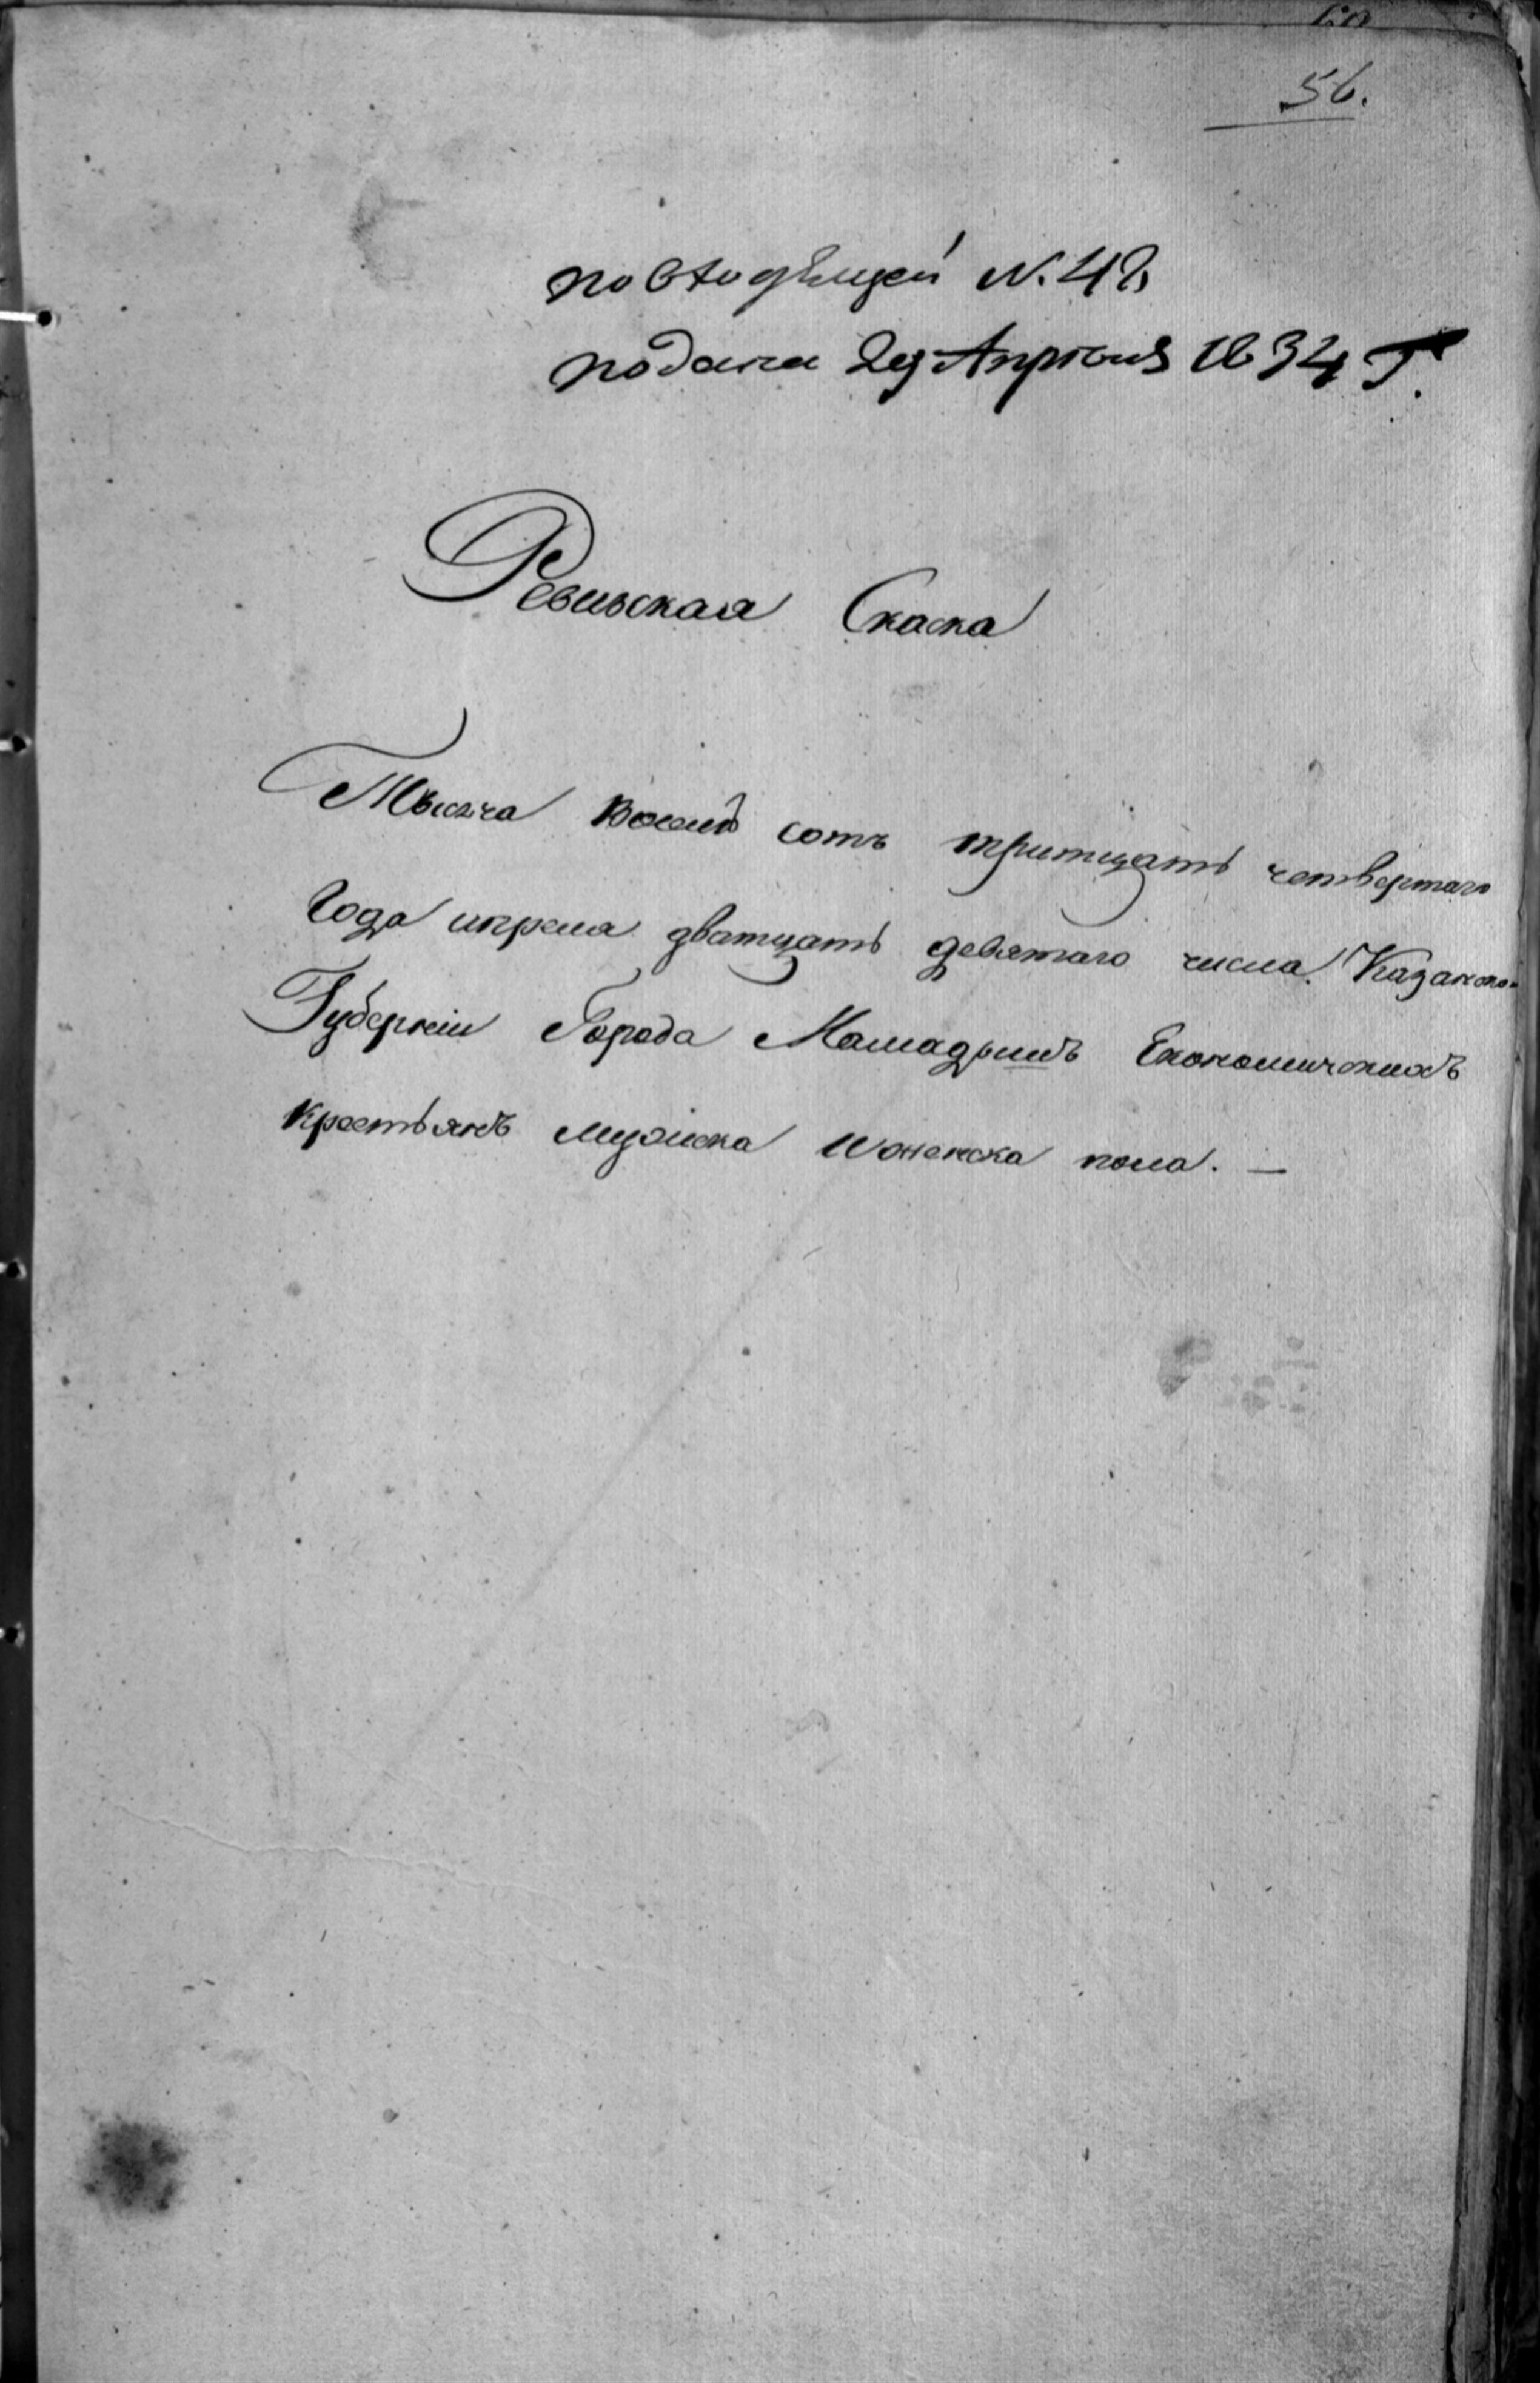 56.
по входящей N. 42
подана 29 Апреля 1834 Г.
Ревиская Скаска
Тысяча восемь сотъ тритцать четвертаго
Года апреля дватцать девятаго числа Казанской
Губерніи Города Мамадышъ Економическихъ
крестьянъ мужска и женска пола. —